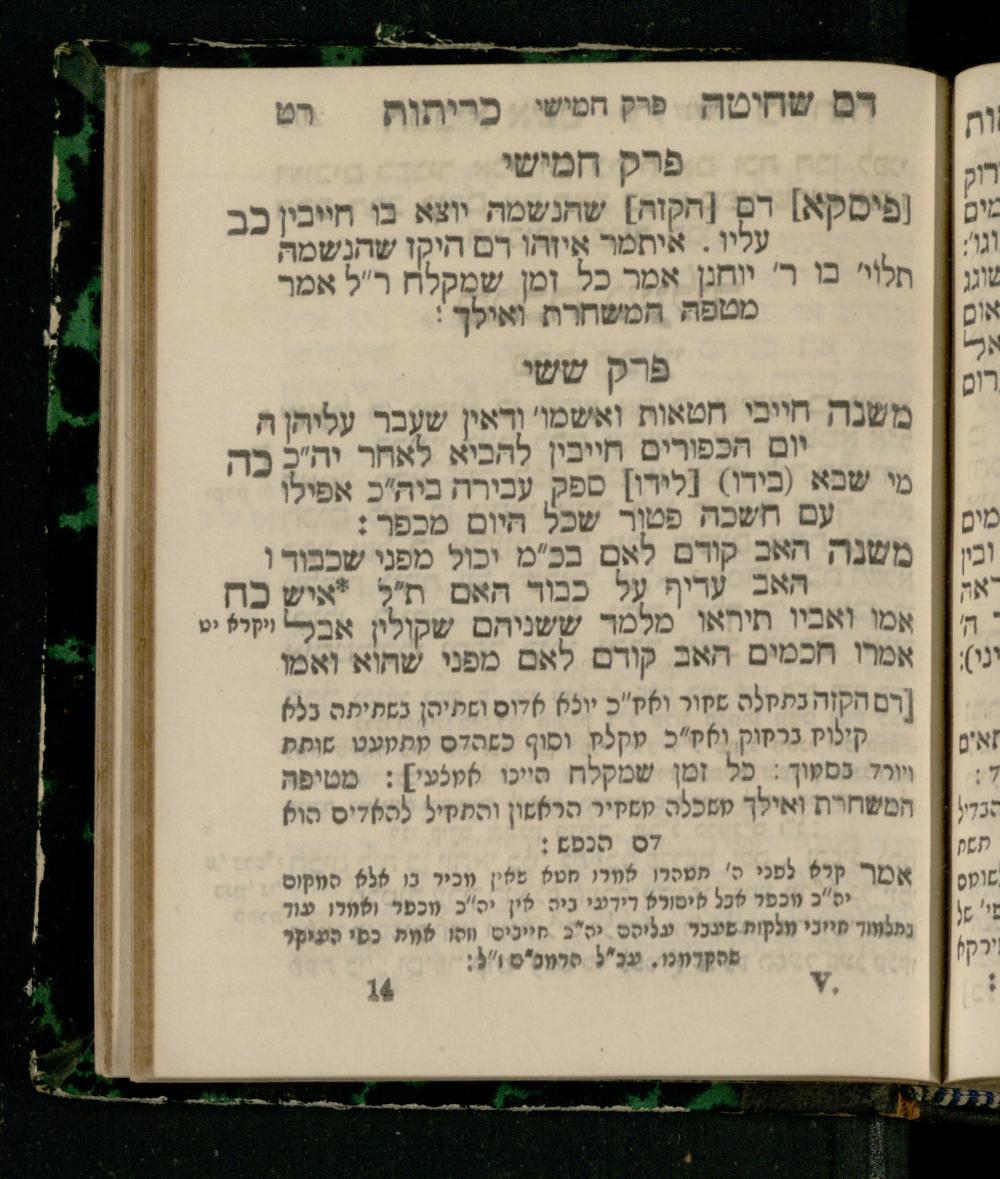 דם שחיטה פרק חמישי כריתות רט
פרק חמישי
[פיסקא] דם [הקזה] שהנשמה יוצא בו חייבין כב
עליו. איתמר איזהו דם היקז שהנשמה
תלוי' בו ר' יוחנן אמר כל זמן שמקלח ר"ל אמר
מטפה המשחרת ואילך:
פרק ששי
משנה חייבי חטאות ואשמו' ודאין שעבר עליהן ה
יום הכפורים חייבין להביא לאחר יה"כ כה
מי שבא (בידו) [לידו] ספק עבירה ביה"כ אפילו
עם חשכה פטור שכל היום מכפר:
משנה האב קודם לאם בכ"מ יכול מפני שכבוד ו
האב עדיף על כבוד האם ת"ל *איש כח
אמו ואביו תיראו מלמד ששניהם שקולין אבל ויקרא יט
אמרו חכמים האב קודם לאם מפני שהוא ואמו
[דם הקזה בתחלה שחור ואח"כ יוצא אדום ושתיהן בשתיתה בלא
קילוח ברחוק ואח"כ מקלח וסוף כשהדם מתמעט שותת
ויורד בסמוך: כל זמן שמקלח היינו אמצעי]: מטיפה
המשחרת ואילך משכלה משחיר הראשון והתחיל להאדים הוא
דם הנפש:
אמר קרא לפני ה' תטהרו אמרו חטא שאין מכיר בו אלא המקום
יה"כ מכפר אבל איסורא דידעי ביה אין יה"כ מכפר ואמרו עוד
בתלמוד חייבי מלקות שעבר עליהם יה"כ חייבים וזהו אמת כפי העיקר
שהקדמנו. עכ"ל הרמב"ם ז"ל:
V. 14